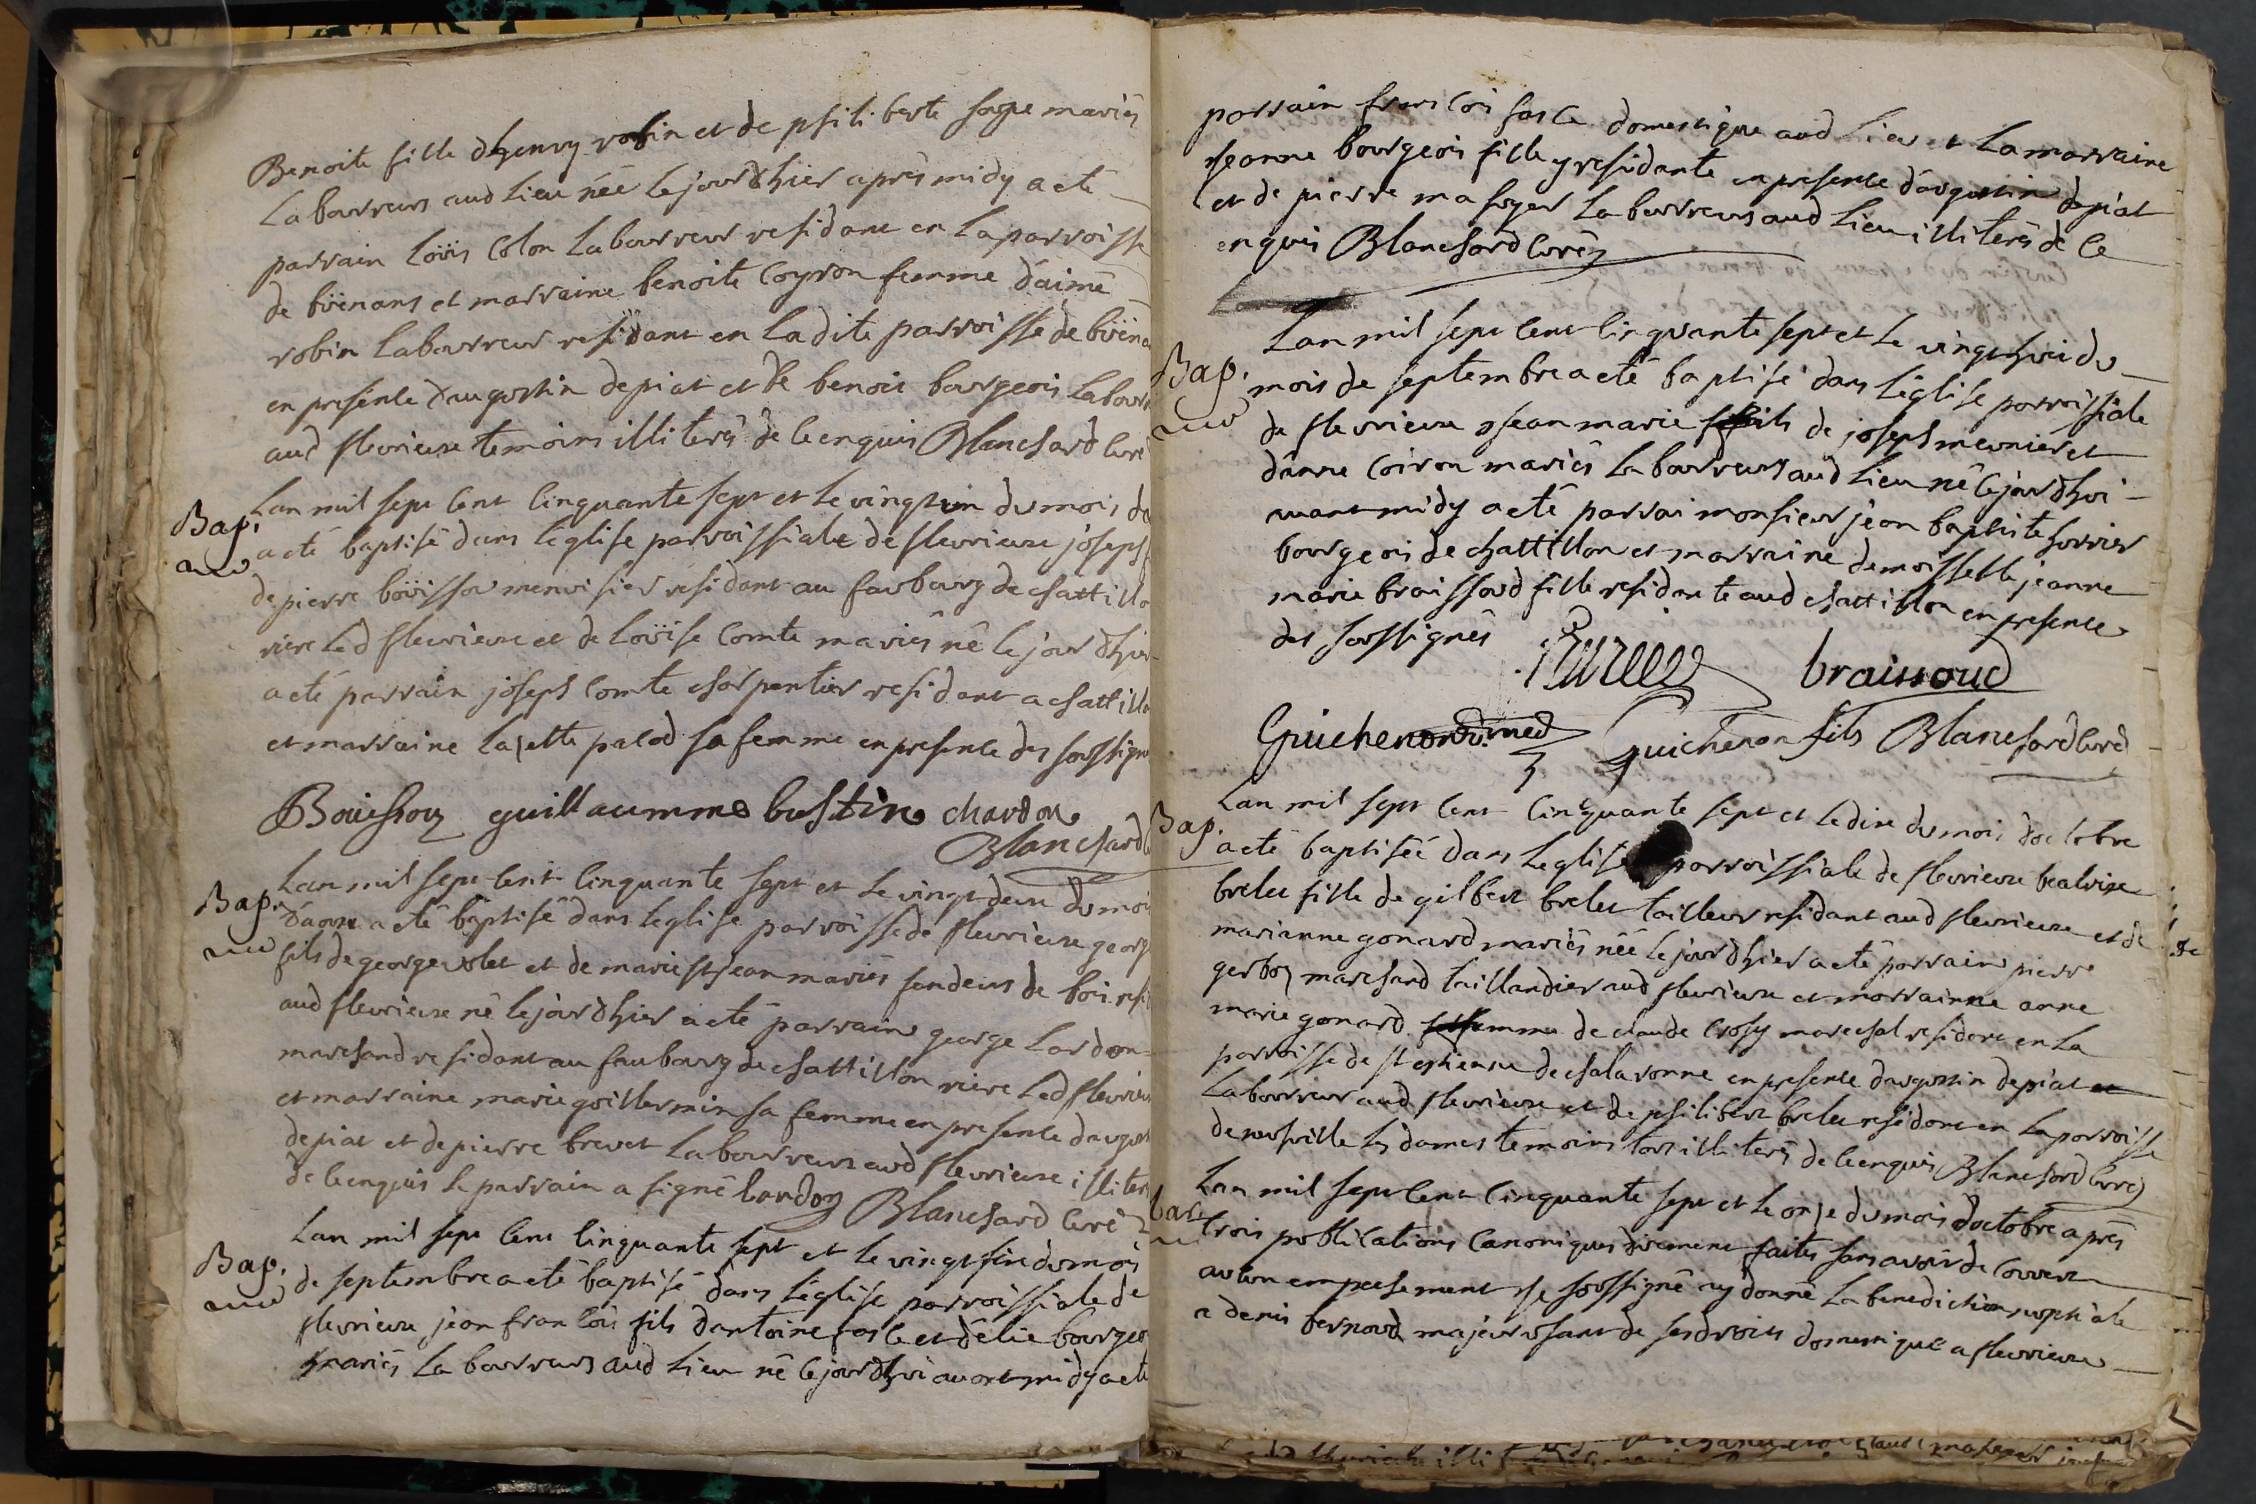 Benoite fille dhenry robin et de philiberte sage mariés
laboureurs aud lieu née le jour dhier aprés midy a eté
parrain loüis colon laboureur residant en la parroisse
de büenans et marraine benoite coyron femme d'aimé
robin laboureur residant en ladite parroisse de büena
en presence d'augustin depiat et de benoit bourgeois labour
aud fleurieux temoins illiterés de ce enquis Blanchard curé
Bap. Lan mil sept cent cinquante sept et le vingt un du mois d
a eté baptisé dans leglise parroissiale de fleurieux joseph
de pierre boüisson menuisier residant au faubourg de chattillo
riere led fleurieux et de loüise comte mariés né le jour dhier
a eté parrain joseph comte charpentier residant a chattillo
et marraine palod sa femme en presence des soussigne
Boüesson guillaumme bustin chardon
Blanchard
Bap. Lan mil sept cent cinquante sept et le vingt deux du moi
d'aoust a eté baptisé dans leglise parroisse de fleurieux georg
fils de george et de marie st jean mariés fendeurs de bois resi
aud fleurieux né le jour dhier a eté parrain george lardon
marchand residant au faubourg de chattillon riere led fleurieu
et marraine marie guillermin sa femme en presence d'augus
depiat et de pierre brevet laboureurs aud fleurieux illiter
de ce enquis le parrain a signé lardon Blanchard curé
Bap. Lan mil sept cent cinquante sept et le vingt six du mois
de septembre a eté baptisé dans leglise parroissiale de
fleurieux jean françois fils dantoine et d'elie bourgeo
mariés laboureurs aud lieu né le jour dhui avant midy a eté
parrain françois domestique aud lieu et la marraine
jeanne bourgeois fille y residante en presence d'augustin depiat
et de pierre ma foyer laboureurs aud lieu illiterés de ce
enquis Blanchard curé
Bap. Lan mil sept cent cinquante sept et le vingt huit du
mois de septembre a eté baptisé dans leglise parroissiale
de fleurieux jean marie fils de joseph meunier et
danne coiron mariés laboureurs aud lieu né le jour dhui
avant midy a eté parrai monsieur jean baptiste
bourgeois de chattillon et marraine demoisselle jeanne
marie braissoud fille residante aud chattillon en presence
des soussignés
braissoud
Guichenon Guichenon fils Blanchard curé
Bap. Lan mil sept cent cinquante sept et le dix du mois d'octobre
a eté baptiséé dans leglise parroissiale de fleurieux
brelet fille de gilbert brelet tailleur residant aud fleurieux et de
marianne gonard mariés néé le jour dhier a eté parrain pierre
gerbon marchand taillandier aud fleurieux et marrainne anne
marie gonard femme de claude crosy marechal residant en la
parroisse de st estienne de chalaronne en presence d'augustin depiat
laboureur aud fleurieux et de philibert brelet residant en la parroisse
de neufville les dames temoins tous illiterés de ce enquis Blanchard curé
Lan mil sept cent cinquante sept et le onze du mois d'octobre aprés
trois publications canoniques düement faites sans avoir decouvert
aucun empechement je soussigné ay donné la benediction nuptiale
a denis bernoud majeur usant de ses droits domestique a fleurieux